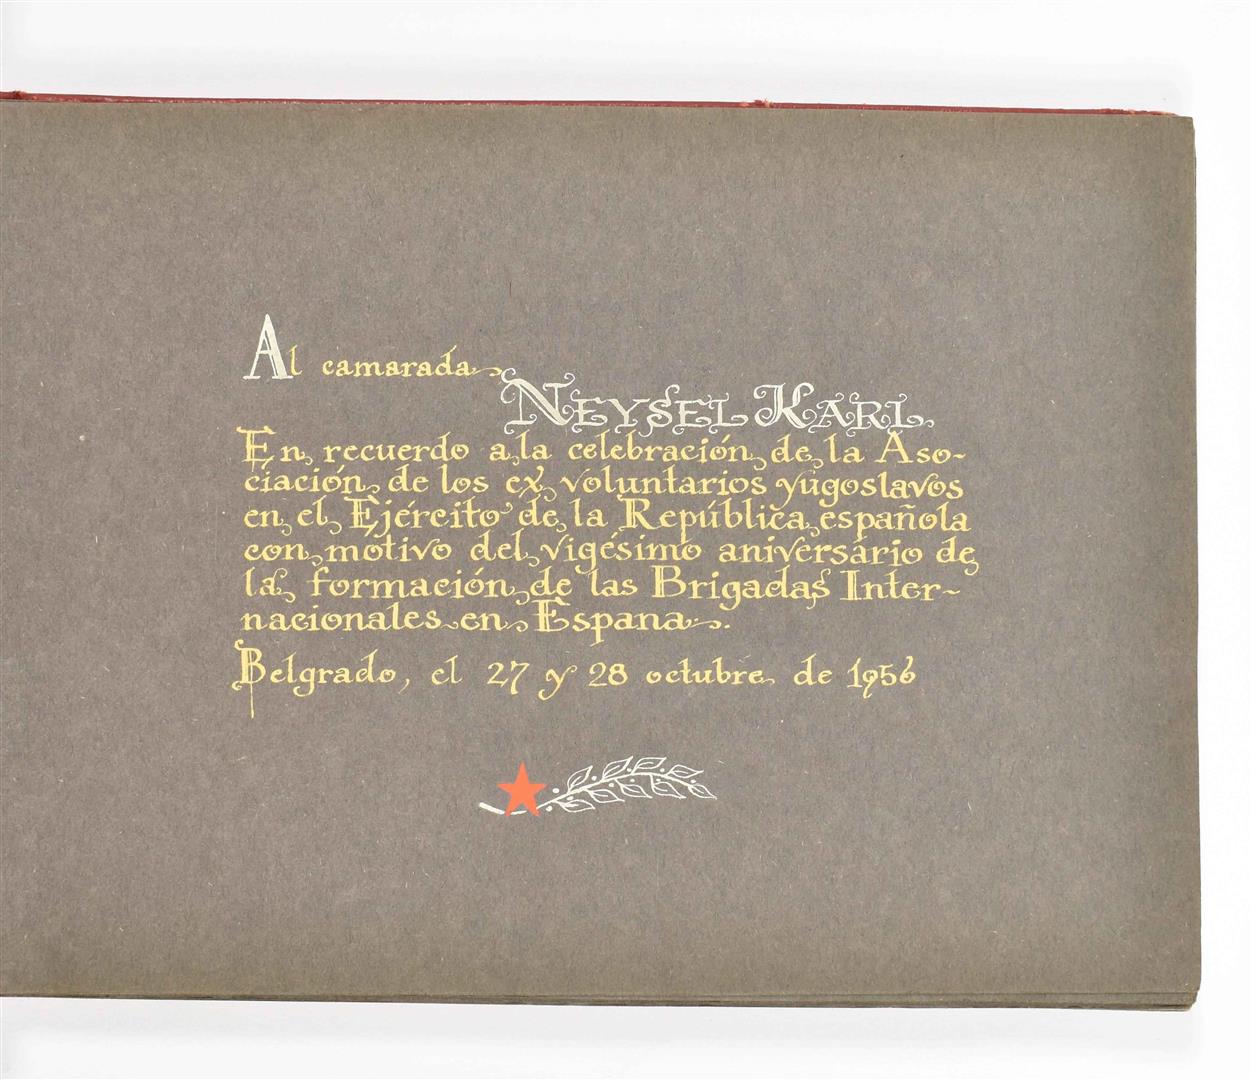 Al camarada
NEYSEL KARL
En recuerdo a la celebración de la Aso-
ciación de los ex voluntarios yugoslavos
en el Ejército de la República española
con motivo del vigésimo aniversário de
la formación de las Brigadas Inter-
nacionales en Espana.
Belgrado, el 27 y 28 octubre de 1956